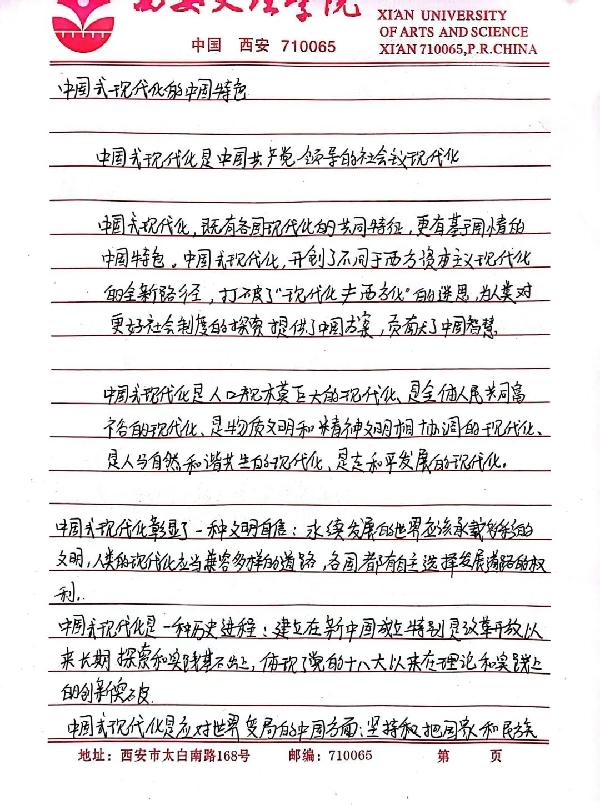 西安文理学院
XI'AN UNIVERSITY
OF ARTS AND SCIENCE
中国 西安 710065
XI'AN 710065,P.R.CHINA
中国式现代化的中国特色
中国式现代化是中国共产党领导的社会议现代化
中国式现代化,既有各国现代化的共同特征,更有基于国情的
中国特色。中国式现代化,开创了不同于西方资本主义现代化
的全新路径,打破了"现代化=西方化"的迷思,为人类对
更好社会制度的探索提供了中国方案,贡献了中国智慧
中国式现代化是人口规模巨大的现代化、是全体人民共同富
裕的现代化、是物质文明和精神文明相协调的现代化、
是人与自然和谐共生的现代化、是走和平发展的现代化。
中国式现代化彰显了一种文明自信:永续发展的世界应该承载多彩的
文明,人类的现代化应当兼容多样的道路,各国都有自主选择发展道路的权
利.
中国式现代化是一种历史进程:建立在新中国成立特别是改革开放以
来长期探索和实践基础上,体现了党的十八大以来在理论和实践上
的创新突破
中国式现代化是应对世界变局的中国方面:坚持把国家和民族
地址:西安市太白南路168号 邮编:710065 第 页